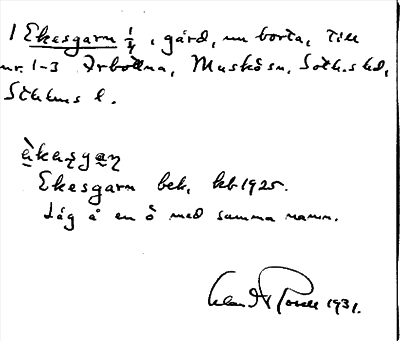 1 Ekesgarn 1/4, gård, nu borta, till
nr. 1-3 Arbottna, Muskö sn, Soth.s hd,
Sthlms l.
Ekesgarn bek, kb 1925.
Låg å en ö med samma namn.
1931.